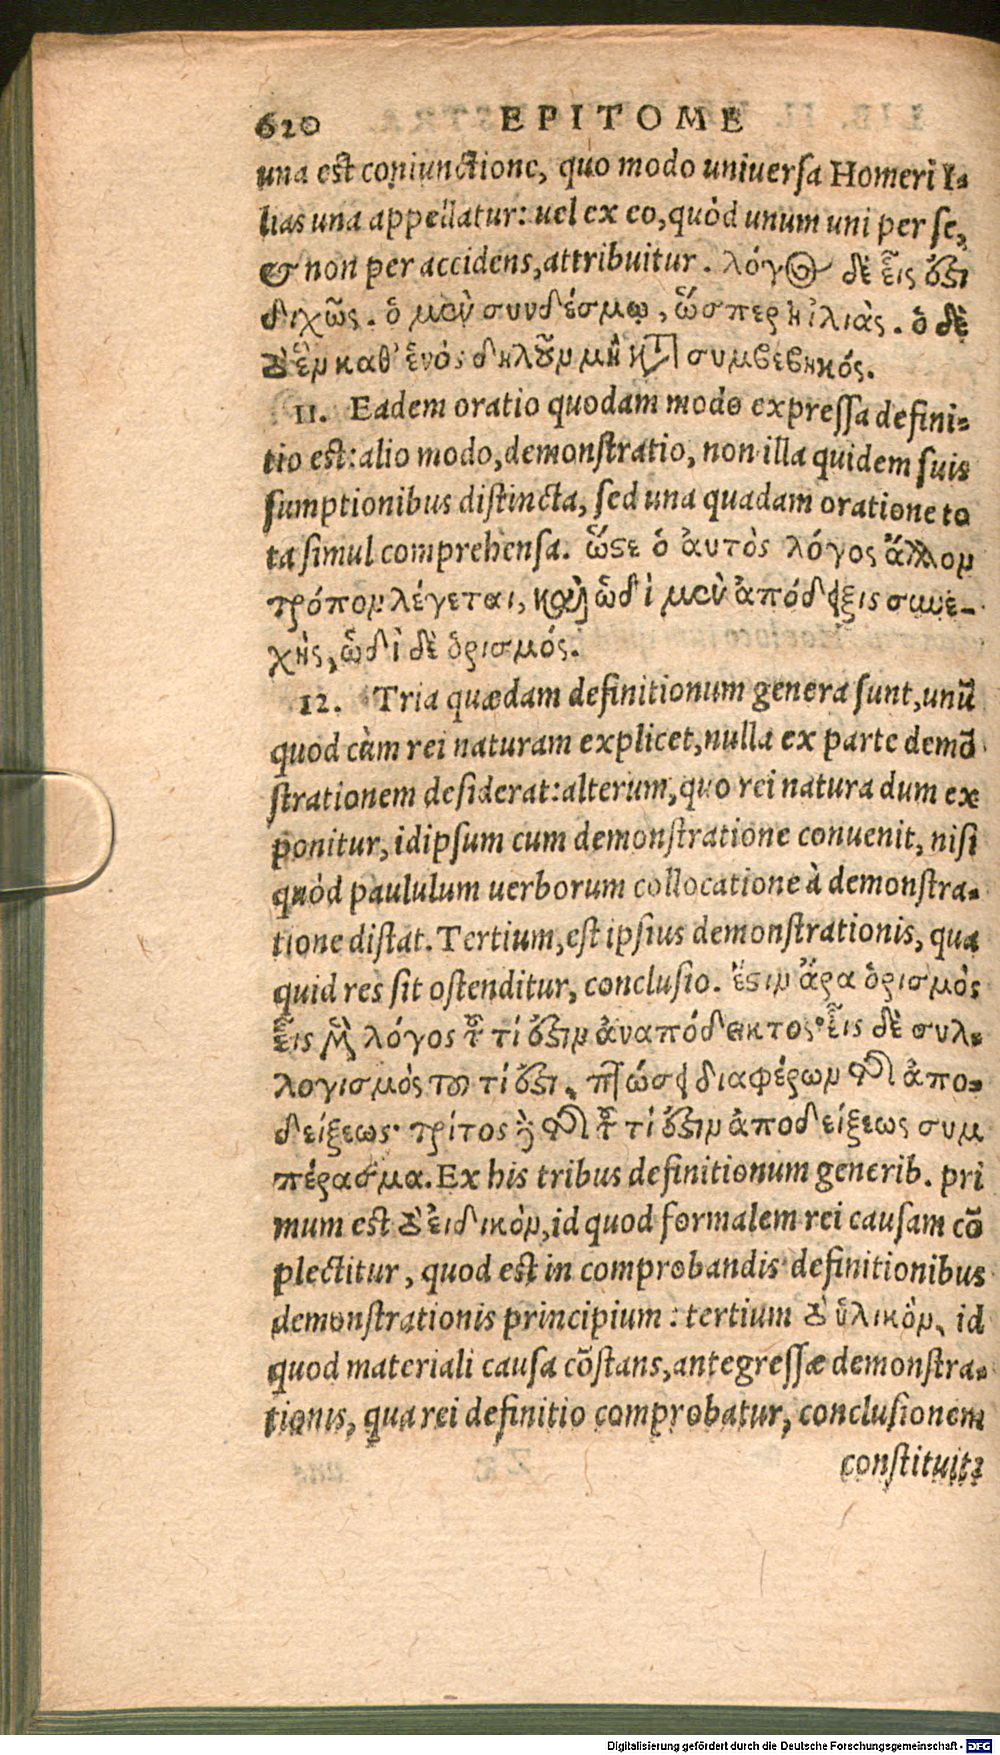 620 EPITOME
una est coniunctione, quo modo uniuersa Homeri I-
lias una appellatur: uel ex eo, quòd unum uni per se,
& non per accidens, attribuitur. λόγος δὲ εἷς ὅςι
διχῶς. ὁ μὲν συνδέσμῳ, ὥσπερ ἡ ἰλιὰς. ὁ δὲ
τὸ ἓν καθ' ἑνὸς δηλοῦν μὴ κτ συμβεβηκός.
11. Eadem oratio quodam modo expressa defini-
tio est: alio modo, demonstratio, non illa quidem suis
sumptionibus distincta, sed una quadam oratione to
ta simul comprehensa. ὥςε ὁ ἀυτὸς λόγος ἄλλον
τρόπον λέγεται, καὶ ὧδὶ μὲν ἀπόδειξις συνε-
χὴς, ὧδὶ δὲ ὁρισμός.
12. Tria quædam definitionum genera sunt, unũ
quod cùm rei naturam explicet, nulla ex parte demõ
strationem desiderat: alterum, quo rei natura dum ex
ponitur, idipsum cum demonstratione conuenit, nisi
quòd paululum uerborum collocatione à demonstra-
tione distat. Tertium, est ipsius demonstrationis, qua
quid res sit ostenditur, conclusio. ἔςιν ἄρα ὁρισμὸς
εἷς μὲν λόγος τοῦ τί ὅςιν ἀναπόδεικτος· εἷς δὲ συλ-
λογισμὸς τοῦ τί ὅςι, πτώσει διαφέρων τῆς ἀπο-
δείξεως· τρίτος δὲ τῆς τοῦ τί ὅςιν ἀποδείξεως συμ
πέρασμα. Ex his tribus definitionum generib. pri
mum est τὸ εἰδικὸν, id quod formalem rei causam cõ
plectitur, quod est in comprobandis definitionibus
demonstrationis principium: tertium τὸ ὑλικὸν, id
quod materiali causa cõstans, antegressæ demonstra-
tionis, qua rei definitio comprobatur, conclusionem
constituit:
Digitalisierung gefördert durch die Deutsche Forschungsgemeinschaft - DFG